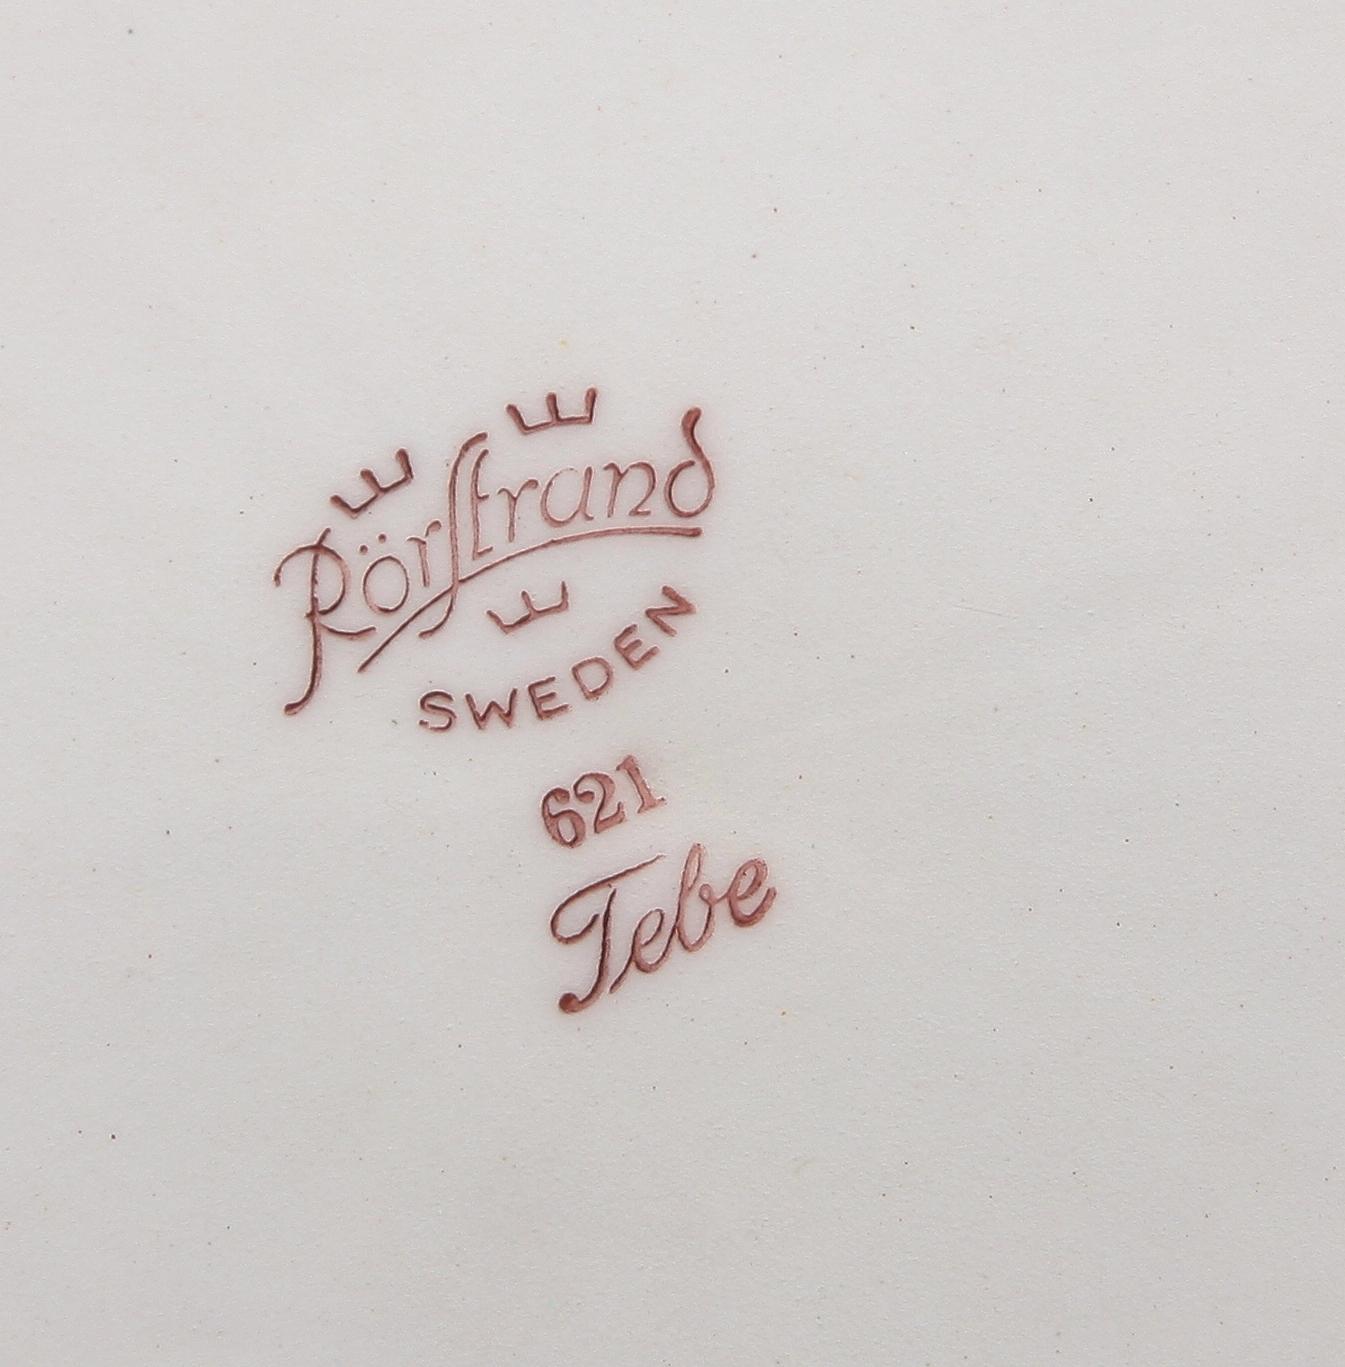 Rörstrand
SWEDEN
621
Tebe